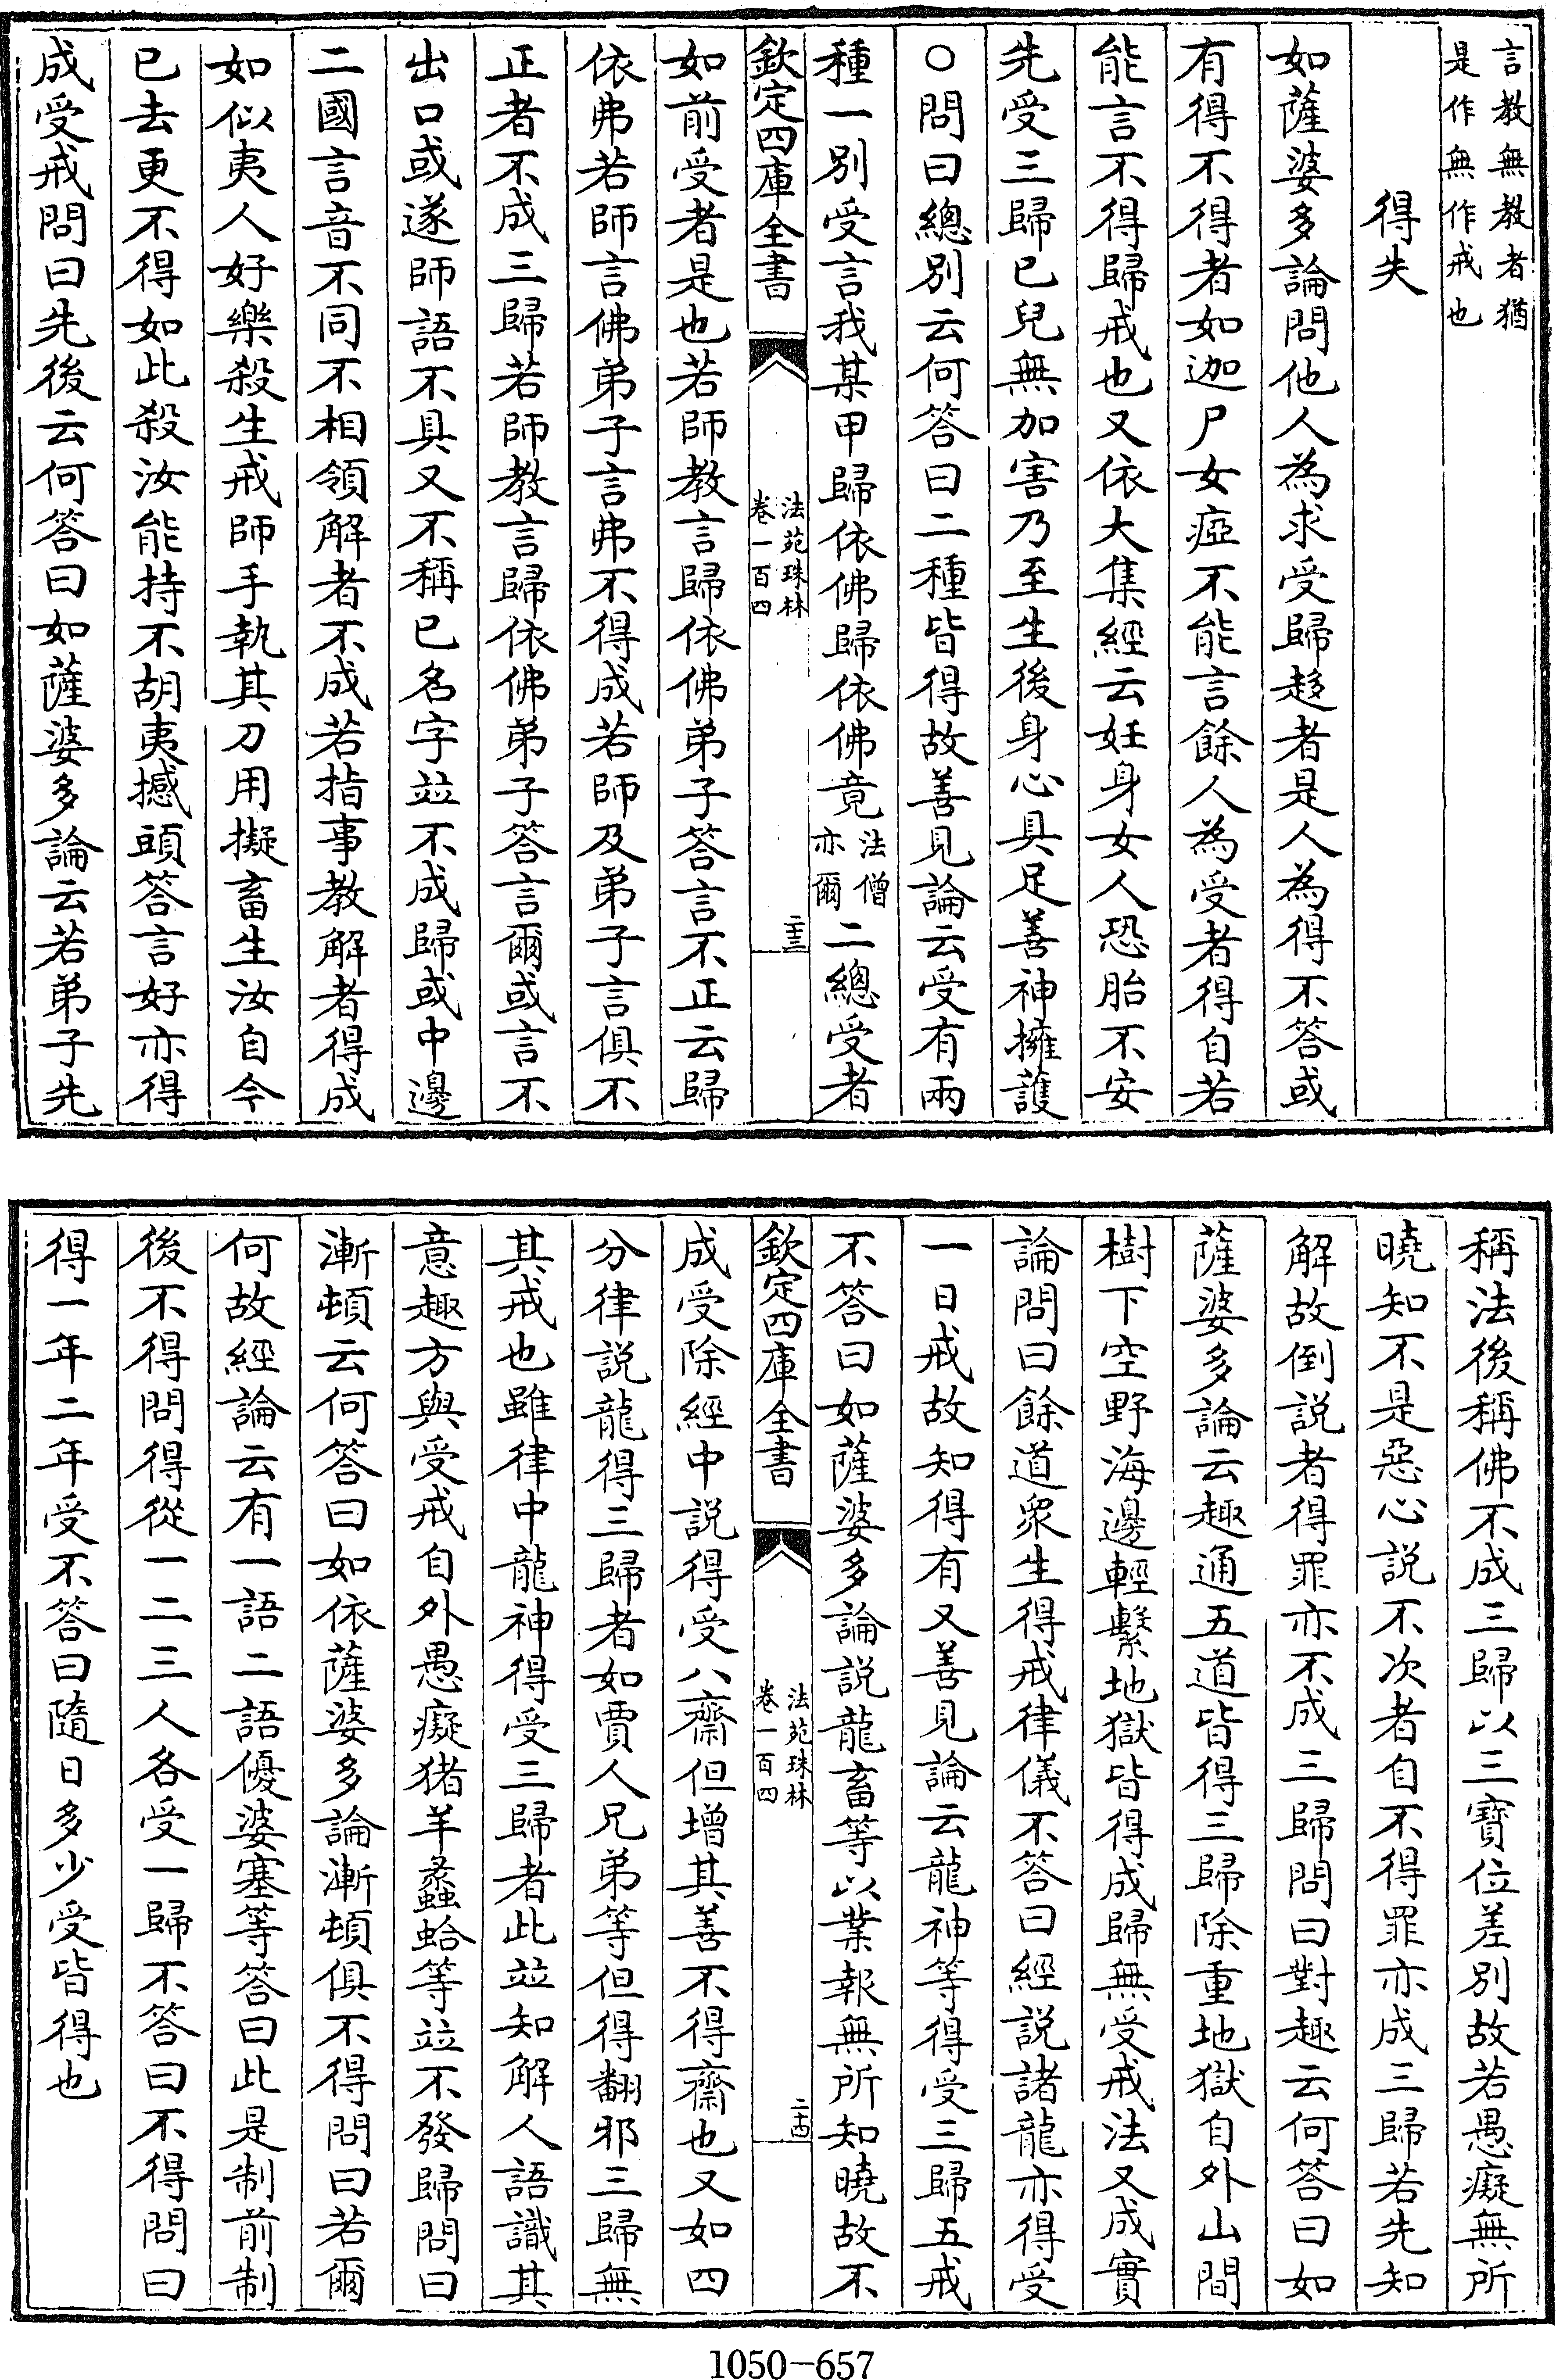 言教無教者猶
是作無作戒也
得失
如薩婆多論問他人為求受歸趍者是人為得不答或
有得不得者如迦尸女瘂不能言餘人為受者得自若
能言不得歸戒也又依大集經云妊身女人恐胎不安
先受三歸已兒無加害乃至生後身心具足善神擁護
○問曰總别云何答曰二種皆得故善見論云受有兩
種一别受言我某甲歸依佛歸依佛竟法僧亦爾二總受者
欽定四庫全書
法苑珠林
卷一百四
二十三
如前受者是也若師教言歸依佛弟子答言不正云歸
依弗若師言佛弟子言弗不得成若師及弟子言俱不
正者不成三歸若師教言歸依佛弟子答言爾或言不
出口或遂師語不具又不稱已名字竝不成歸或中邊
二國言音不同不相領解者不成若指事教解者得成
如似夷人好樂殺生戒師手執其刀用擬畜生汝自今
已去更不得如此殺汝能持不胡夷撼頭答言好亦得
成受戒問曰先後云何答曰如薩婆多論云若弟子先
稱法後稱佛不成三歸以三寶位差别故若愚癡無所
曉知不是惡心說不次者自不得罪亦成三歸若先知
解故倒說者得罪亦不成三歸問曰對趣云何答曰如
薩婆多論云趣通五道皆得三歸除重地獄自外山間
樹下空野海邊輕繫地獄皆得成歸無受戒法又成實
論問曰餘道衆生得戒律儀不答曰經說諸龍亦得受
一日戒故知得有又善見論云龍神等得受三歸五戒
不答曰如薩婆多論說龍畜等以業報無所知曉故不
欽定四庫全書
法苑珠林
卷一百四
二十四
成受除經中說得受八齋但增其善不得齋也又如四
分律說龍得三歸者如賈人兄弟等但得翻邪三歸無
其戒也雖律中龍神得受三歸者此竝知解人語識其
意趣方與受戒自外愚癡猪羊蟸蛤等竝不發歸問曰
漸頓云何答曰如依薩婆多論漸頓俱不得問曰若爾
何故經論云有一語二語優婆塞等答曰此是制前制
後不得問得從一二三人各受一歸不答曰不得問曰
得一年二年受不答曰隨日多少受皆得也
1050-657